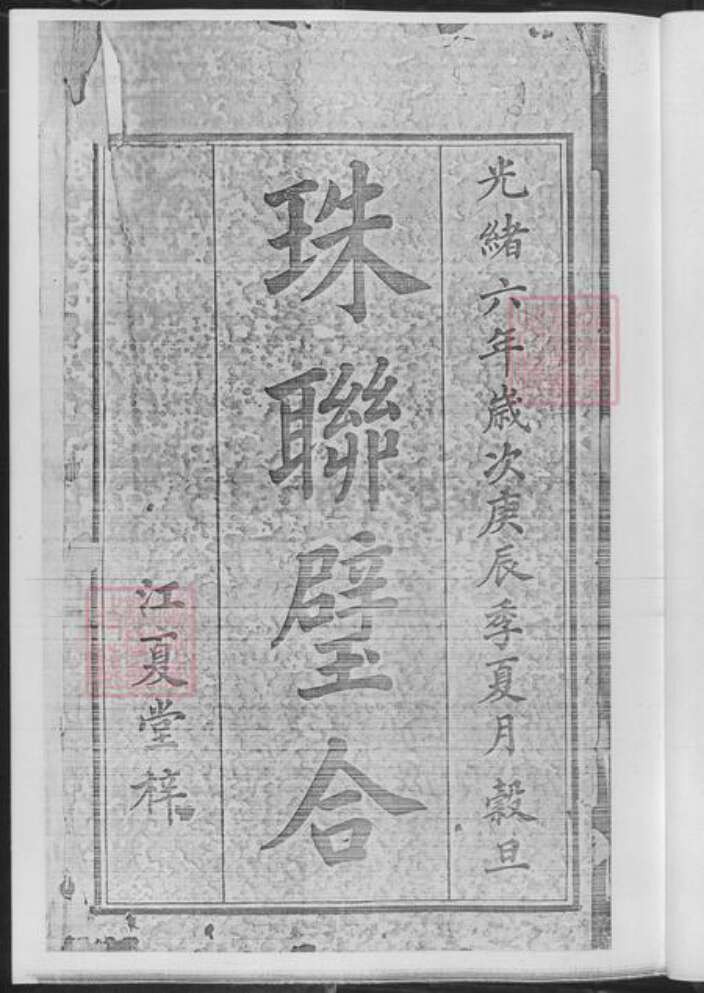 光緒六年歲次庚辰季夏月穀旦
珠聯璧合
江夏堂梓